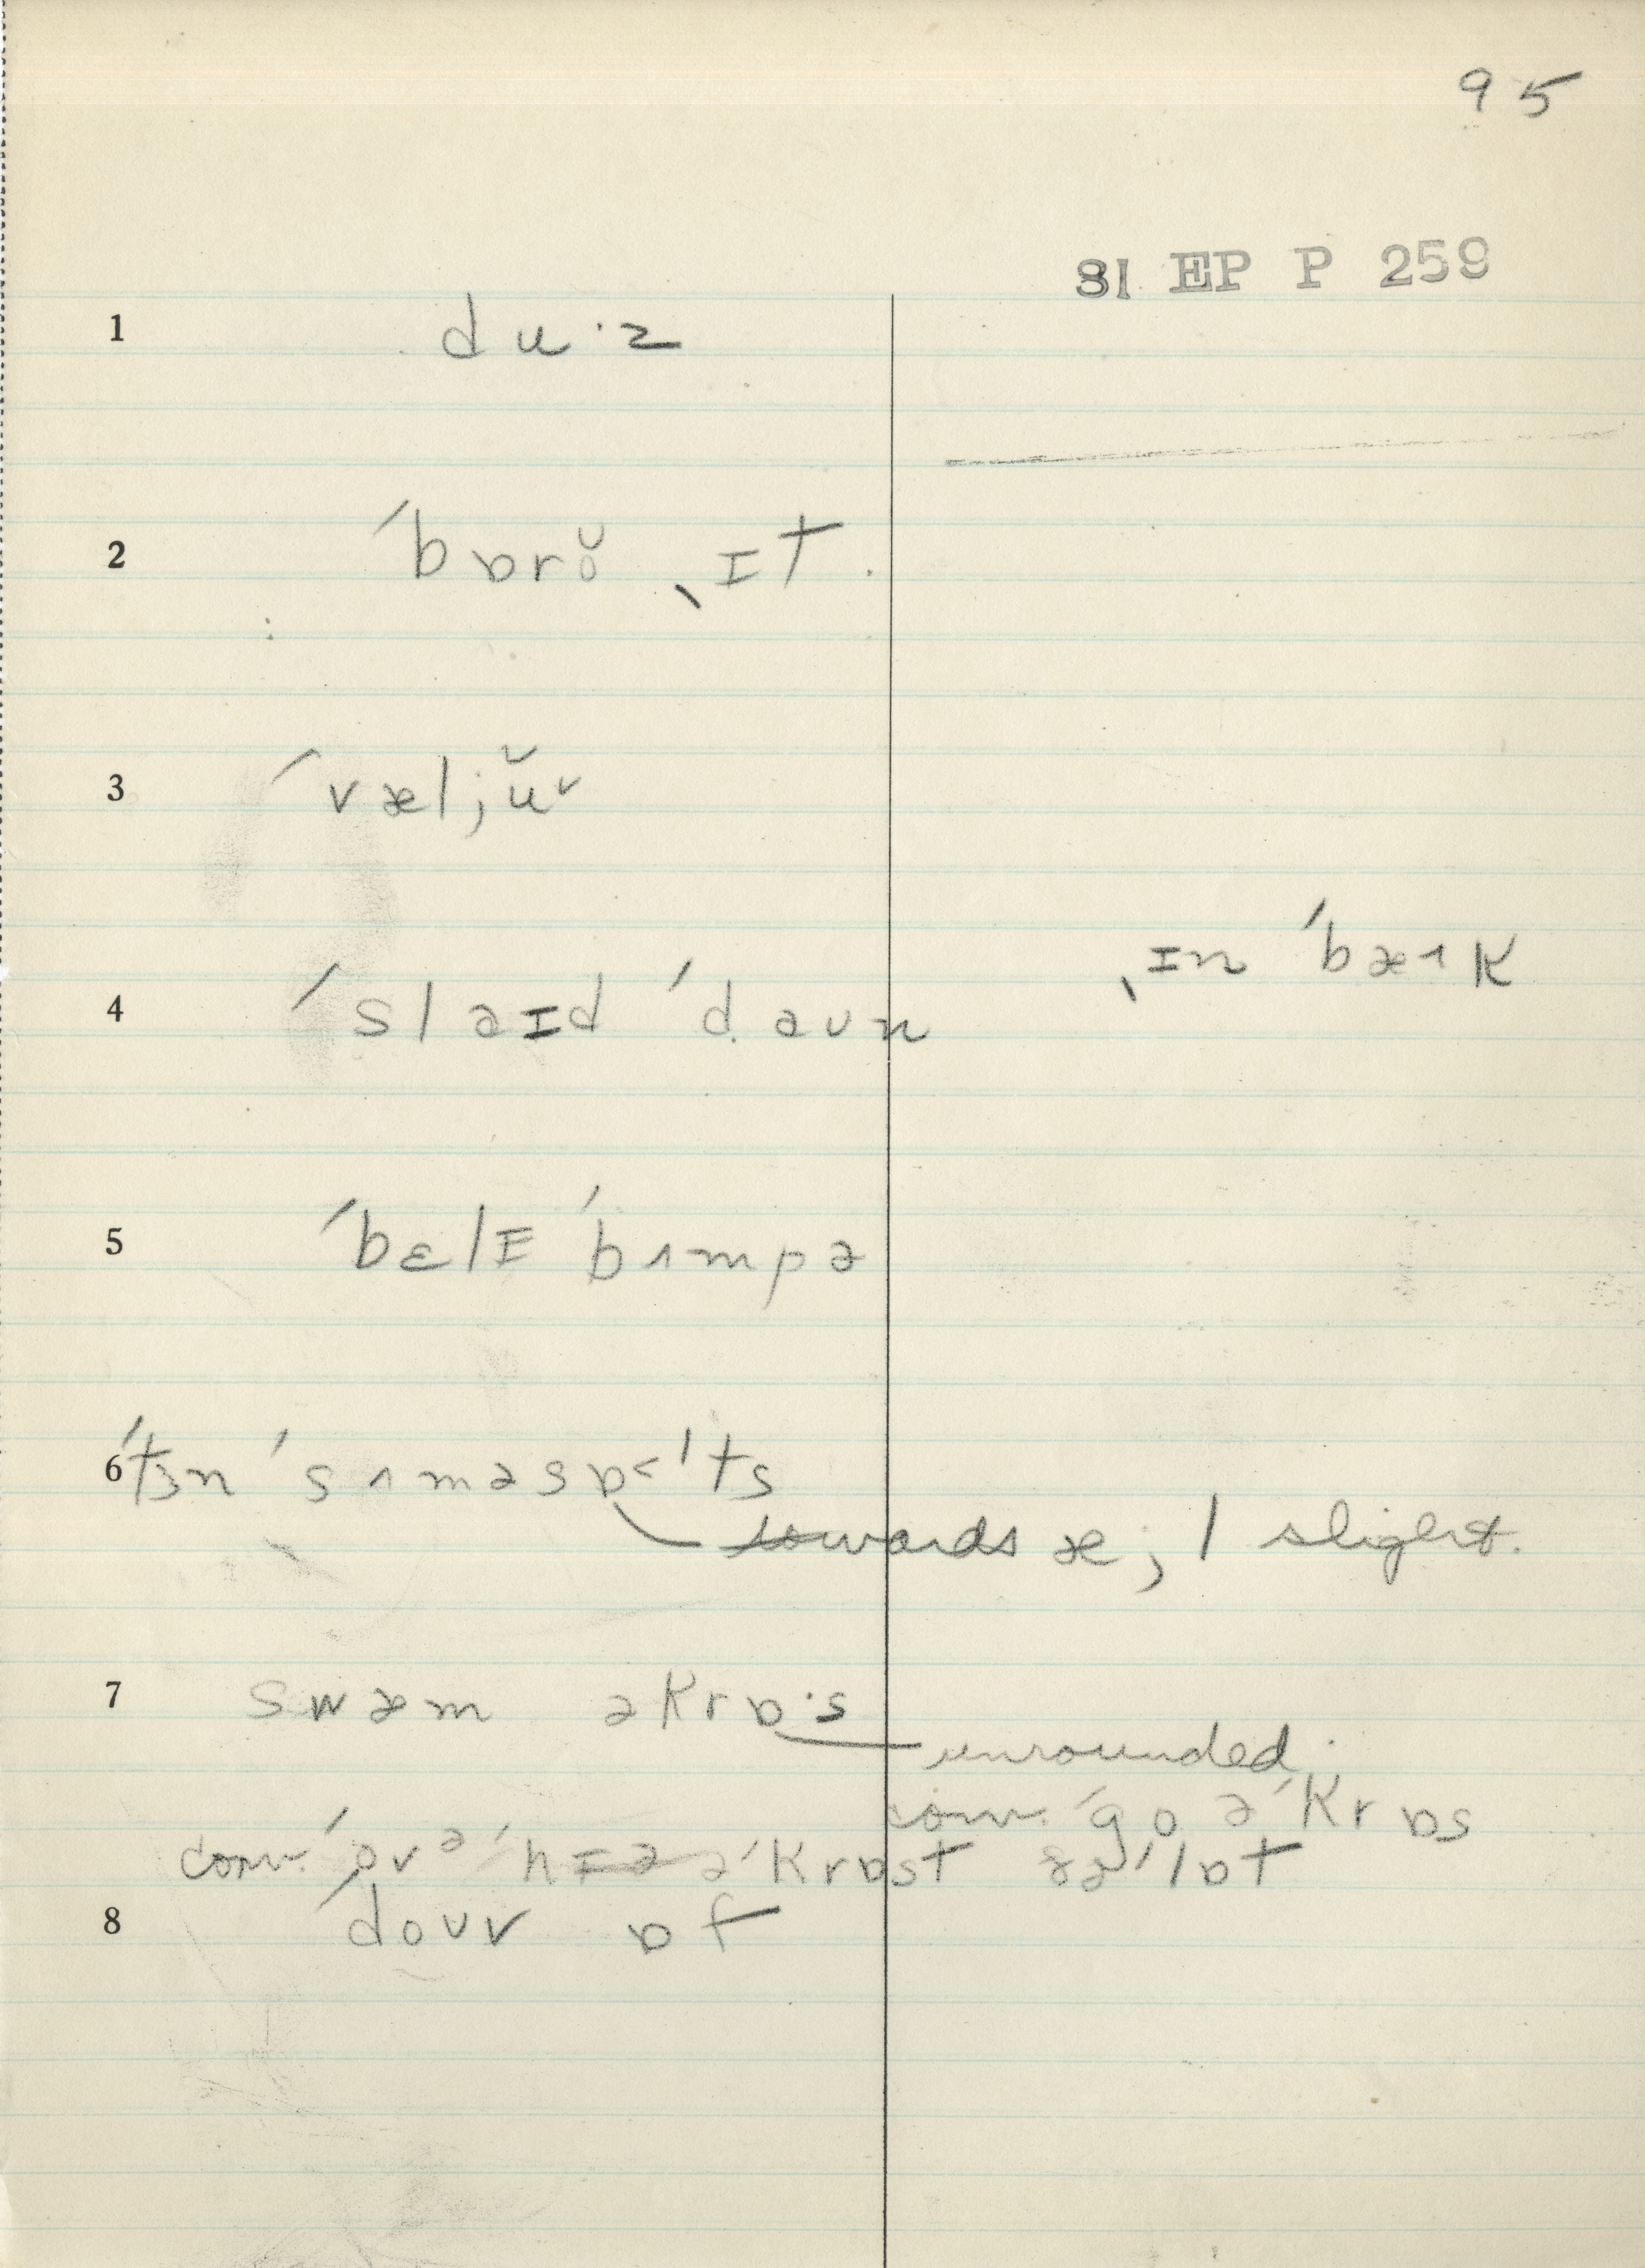 95
SI EP P 259
1 du·z
2 ´bɒrŏ ˎɪt.
3 ´væljŭᵛ
4 ´slaɪd ´daun ˎɪn ´bæ˧k
5 ´bɛlɪ ´bʌmpə
6 ´tɜn ´sʌməsɒ˂ˈts
towards æ; l slight.
7 swæm əkrɒ·s
unrounded.
conv. ´go ə´krɒs
conv. ´ovə ´hɪə ə´krɒst ðə ´lɒt
8 ´douv ɒf